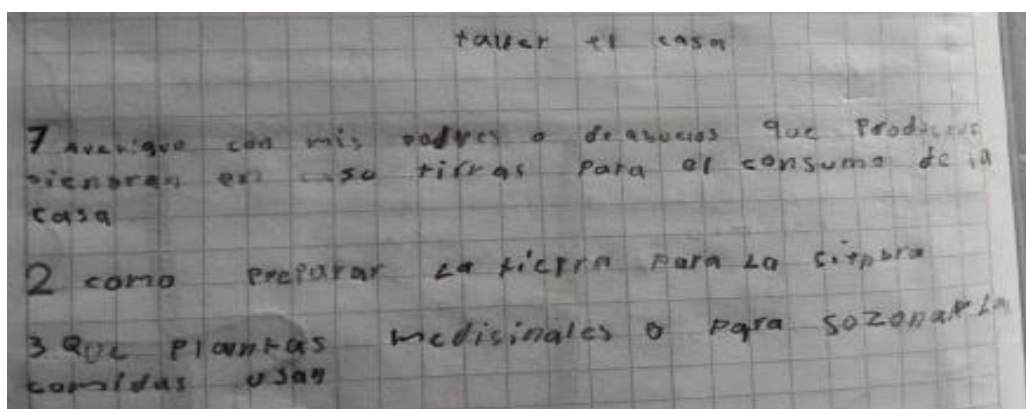 taller el casa
1 Averiguo con mis padres o de abuelos que Produc
sienbran en su tirras para el consumo de la
casa
2 como preparar La tierra para La sienbra
3 Que Plantas medisinales o para sozonar La
comidas usan